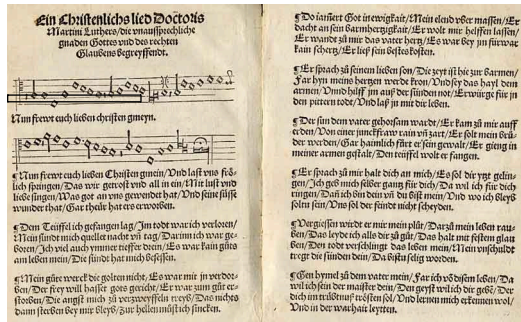 Ein Christenlichs lied Doctoris
Martini Luthers/die unaussprechliche
gnaden Gottes und des rechten
Glaubens begreyffendt.
Nun frewt euch lieben christen gmeyn.
¶Nun frewt euch lieben Christen gmein/Und last uns frö-
lich springen/Das wir getrost und all in ein/Mit lust und
liebe singen/Was got an uns gewendet hat/Und seine süsse
wunder that/Gar theür hat ers erworben.
¶Dem Teüffel ich gefangen lag/Jm todt war ich verloren/
Mein sündt mich quellet nacht uñ tag/Darinn ich war ge-
boren/Jch viel auch ymmer tieffer drein/Es war kain güts
am leben mein/Die sündt hat mich besessen.
¶Mein güte werck die golten nicht/Es war mit jn verdor-
ben/Der frey will hasset gots gericht/Er war zum güt er-
storben/Die angst mich zů verzweyffeln treyb/Das nichts
dann sterben bey mir bleyb/Zur hellen můst ich sincken.
¶Do jamert Got in ewigkait/Mein elend uber massen/Er
dacht an sein barmhertzigkait/Er wolt mir helffen lassen/
Er wandt zů mir das vater hertz/Es war bey jm fürwar
kain schertz/Er ließ sein bestes kosten.
¶Er sprach zů seinem lieben son/Die zeyt ist hie zur barmen/
Far hyn meins hertzen werde kron/Und sey das hayl dem
armen/Unnd hilff jm auß der sünden not/Erwürge für jn
den pittern todt/Und laß jn mit dir leben.
¶Der sun dem vater gehorsam wardt/Er kam zů mir auff
erden/Von einer junckfraw rain uñ zart/Er solt mein brů-
der werden/Gar haimlich fürt er sein gewalt/Er gieng in
meiner armen gestalt/Den teüffel wolt er fangen.
¶Er sprach zů mir halt dich an mich/Es sol dir ytzt gelin-
gen/Jch geb mich selber gantz für dich/Da wil ich für dich
ringen/Dañ ich bin dein uñ du bist mein/Und wo ich bleyb
soltu sein/Uns sol der feindt nicht scheyden.
¶Vergiessen wirdt er mir mein plůt/Darzů mein leben rau-
ben/Das leyde ich alls dir zů gůt/Das halt mit festem glau
ben/Den todt verschlingt das leben mein/Mein unschuldt
tregt die sünden dein/Da bistu selig worden.
¶Gen hymel zů dem vater mein/Far ich vō disem leben/Da
wil ich sein der maister dein/Den geyst wil ich dir gebē/Der
dich im trübtnuß trösten sol/Und lernen mich erkennen wol/
Und in der warhait leytten.